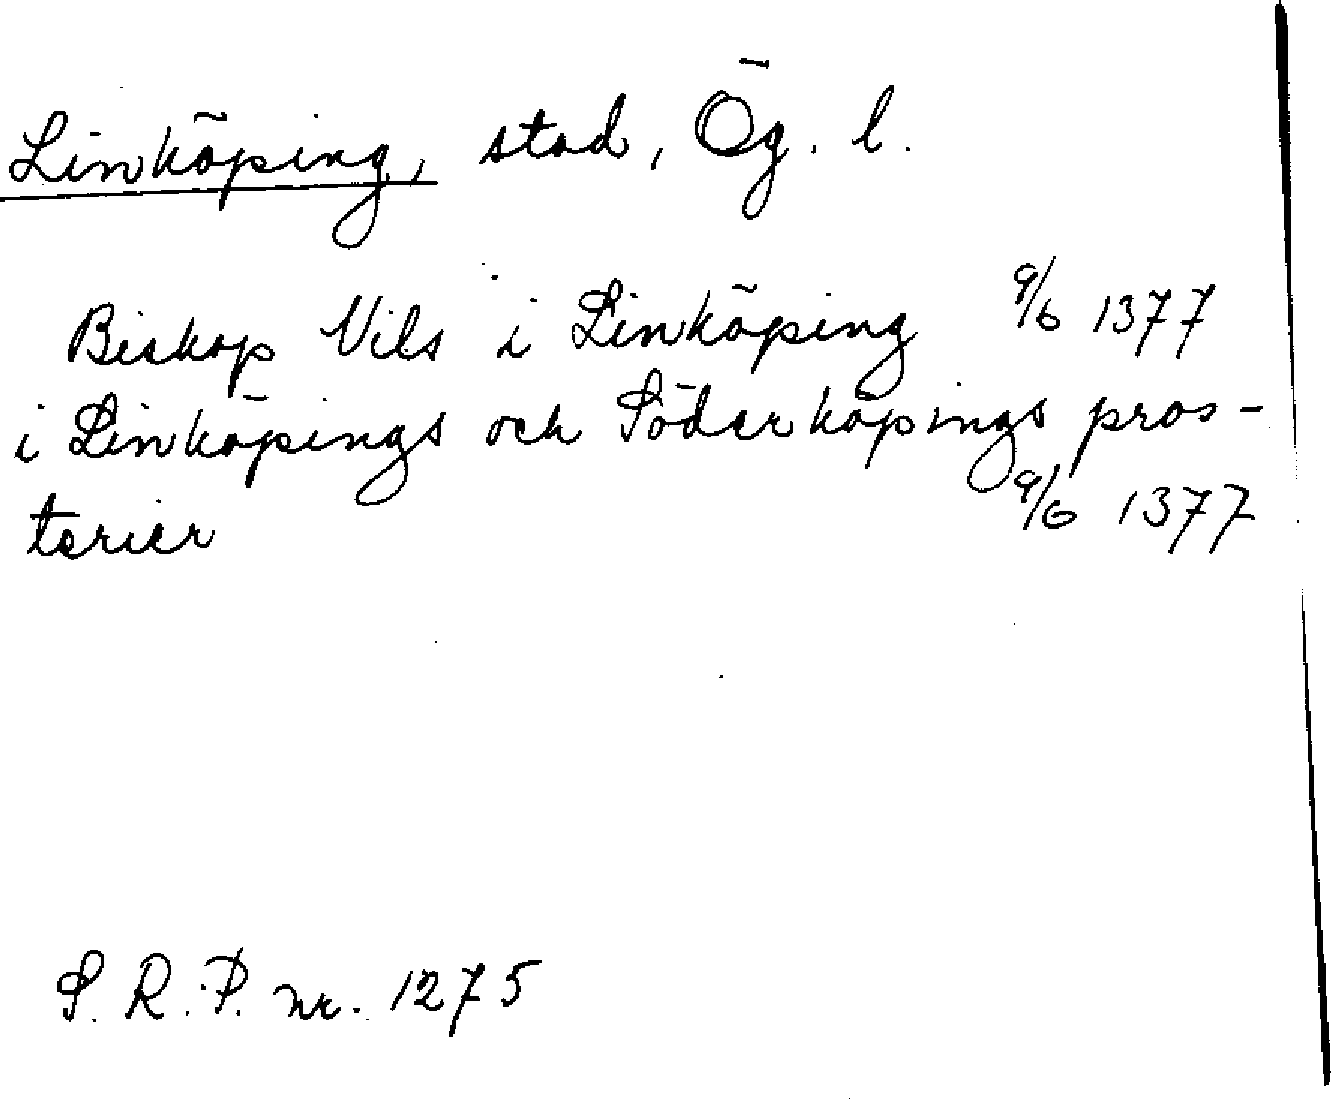 Linköping, stad, Ög. l.
Biskop Nils i Linköping 9/6 1377
i Linköpings och Söderköpings pros-
terier 9/6 1377
S. R. P. nr. 1275